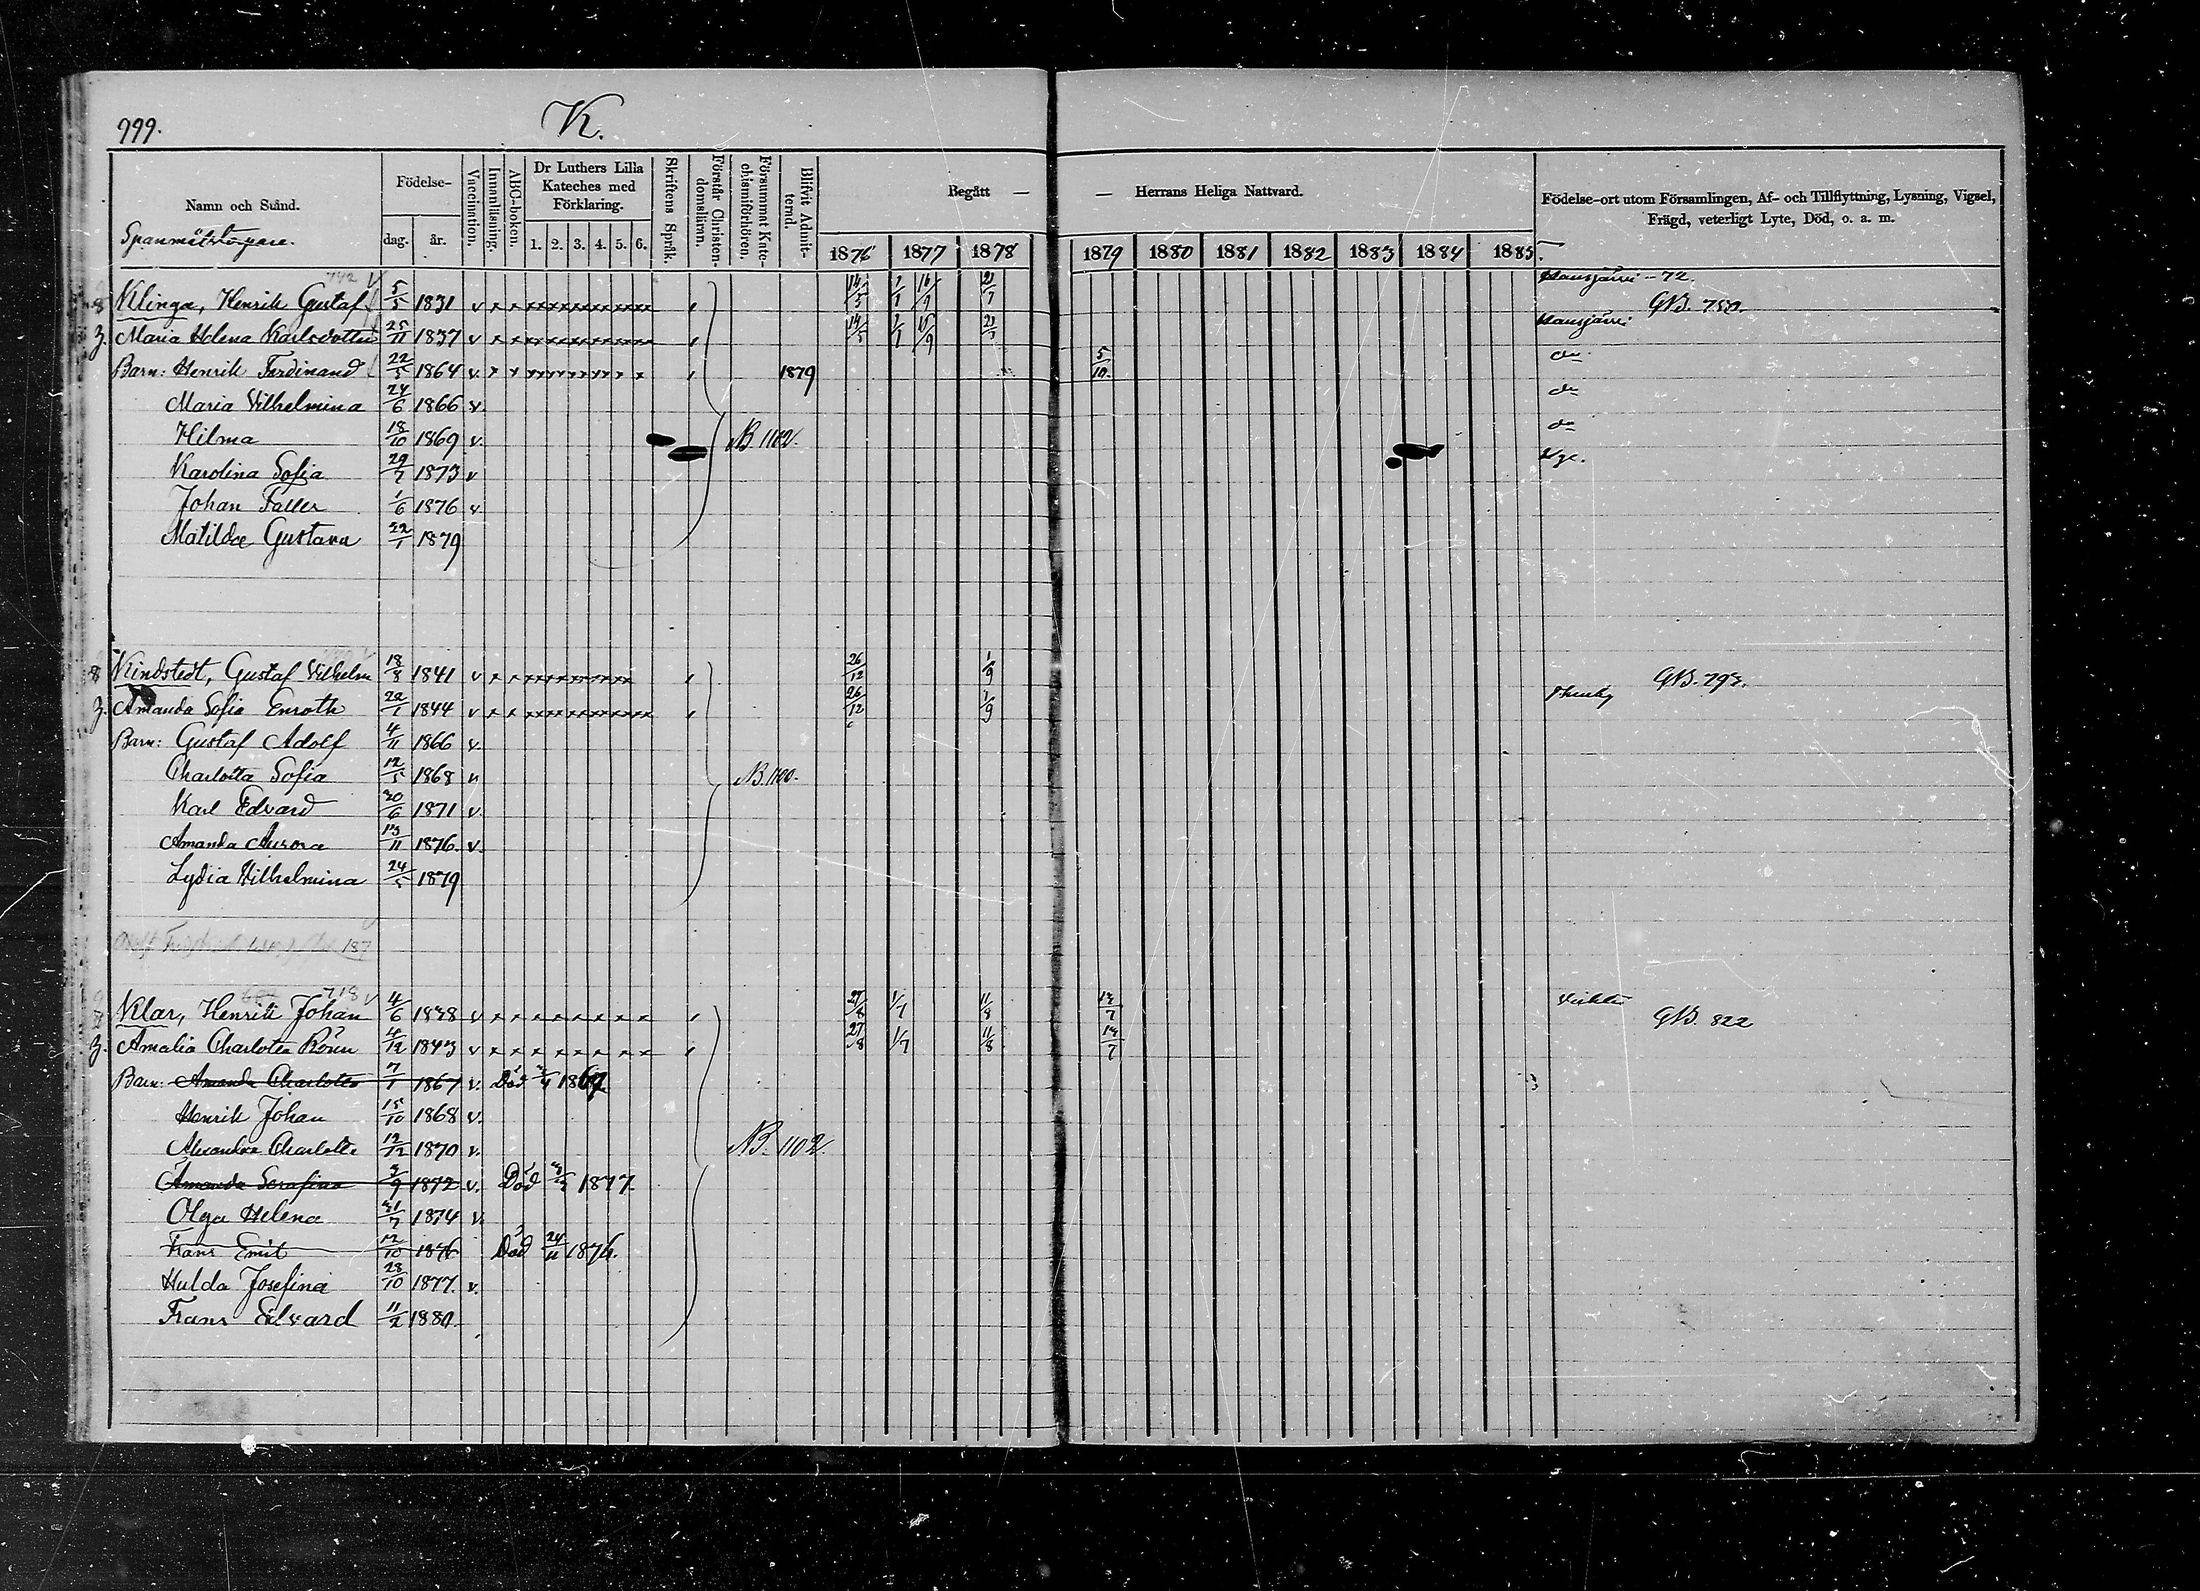 999.
K.
Namn och Stånd.
Födelse-
dag.
år.
Vaccination.
Innanläsning.
ABC-boken.
Dr Luthers Lilla
Kateches med
Förklaring.
1. 2. 3. 4. 5. 6.
Skriftens Språk.
Förstår Christen-
domsläran.
Försummat Kate-
chismiförhören.
Blifvit Admit-
terad.
Begått —
— Herrans Heliga Nattvard.
1876 1877 1878
1879 1880 1881 1882 1883 1884 1885
Födelse-ort utom Församlingen, Af- och Tillflyttning, Lysning, Vigsel,
Frägd, veterligt Lyte, Död, o. a. m.
Klinga, Henrik Gustaf 5/5 1831 v 14/5 16/9
Hausjärvi -72.
GB. 750.
Maria Helena Karlsdotter 25/11 1837 v 14/5
Hausjärvi
Barn: Henrik Ferdinand 22/5 1864 v. 1879 5/10. do
Maria Vilhelmina 24/6 1866 v. do
Hilma 18/10 1869 v. NB 1102. do
Karolina Sofia 29/7 1873 v
Johan 1/6 1876 v.
Matilda Gustava 22/1 1879
Kindstedt, Gustaf Vilhelm 18/8 1841 v 26/12 1/9
GB. 793.
Amanda Sofia Enroth 1844 v 26/12 1/9
Barn: Gustaf Adolf 4/11 1866 v.
Charlotta Sofia 12/5 1868 v NB. 1100.
Karl Edvard 30/6 1871 v.
Amanda Aurora 13/11 1876. v.
Lydia Vilhelmina 24/5 1879
718 v
Klar, Henrik Johan 4/6 1838 v 27/8 1/7 11/8 13/7
GB. 822
Amalia Charlotta Rönn 4/12 1843 v 27/8 1/7 11/8 13/7
Barn: Amanda Charlotta 7/1 1867 v. Död
Henrik Johan 15/10 1868 v.
Alexandra Charlotta 12/12 1870 v. NB. 1102.
Amanda Serafina 3/9 1872 v. Död 1877.
Olga Helena 31/7 1874 v.
Frans Emil 12/10 1876 Död 24/11 1876.
Hulda Josefina 28/10 1877. v.
Frans Edvard 11/2 1880.